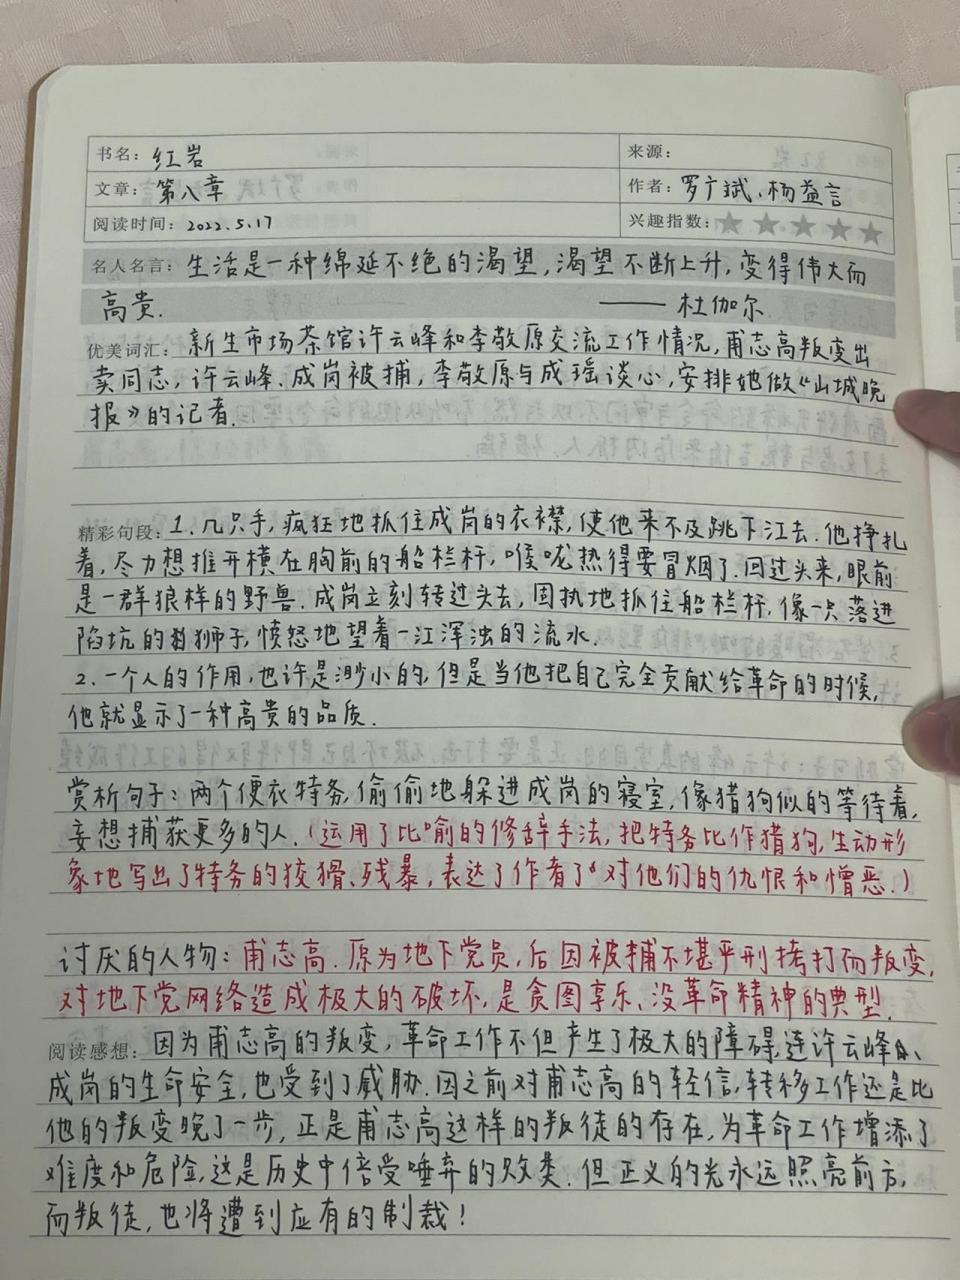 书名：红岩
来源：
文章：第八章
作者：罗广斌、杨益言
阅读时间：2022.5.17
兴趣指数：★★★★★
名人名言：生活是一种绵延不绝的渴望，渴望不断上升，变得伟大而
高贵.
—— 杜伽尔
优美词汇：新生市场茶馆许云峰和李敬原交流工作情况，甫志高叛变出
卖同志，许云峰、成岗被捕，李敬原与成瑶谈心，安排她做《山城晚
报》的记者.
精彩句段：1.几只手，疯狂地抓住成岗的衣襟，使他来不及跳下江去.他挣扎
着，尽力想推开横在胸前的船栏杆，喉咙热得要冒烟了.回过头来，眼前
是一群狼样的野兽.成岗立刻转过头去，固执地抓住船栏杆，像一只落进
陷坑的狮子，愤怒地望着一江浑浊的流水.
2.一个人的作用，也许是渺小的，但是当他把自己完全贡献给革命的时候，
他就显示了一种高贵的品质.
赏析句子：两个便衣特务，偷偷地躲进成岗的寝室，像猎狗似的等待着，
妄想捕获更多的人.（运用了比喻的修辞手法，把特务比作猎狗，生动形
象地写出了特务的狡猾、残暴，表达了作者了对他们的仇恨和憎恶.）
讨厌的人物：甫志高.原为地下党员，后因被捕不堪严刑拷打而叛变，
对地下党网络造成极大的破坏，是贪图享乐、没革命精神的典型.
阅读感想：因为甫志高的叛变，革命工作不但产生了极大的障碍，连许云峰、
成岗的生命安全，也受到了威胁.因之前对甫志高的轻信，转移工作还是比
他的叛变晚了一步，正是甫志高这样的叛徒的存在，为革命工作增添了
难度和危险，这是历史中倍受唾弃的败类.但正义的光永远照亮前方，
而叛徒，也将遭到应有的制裁！